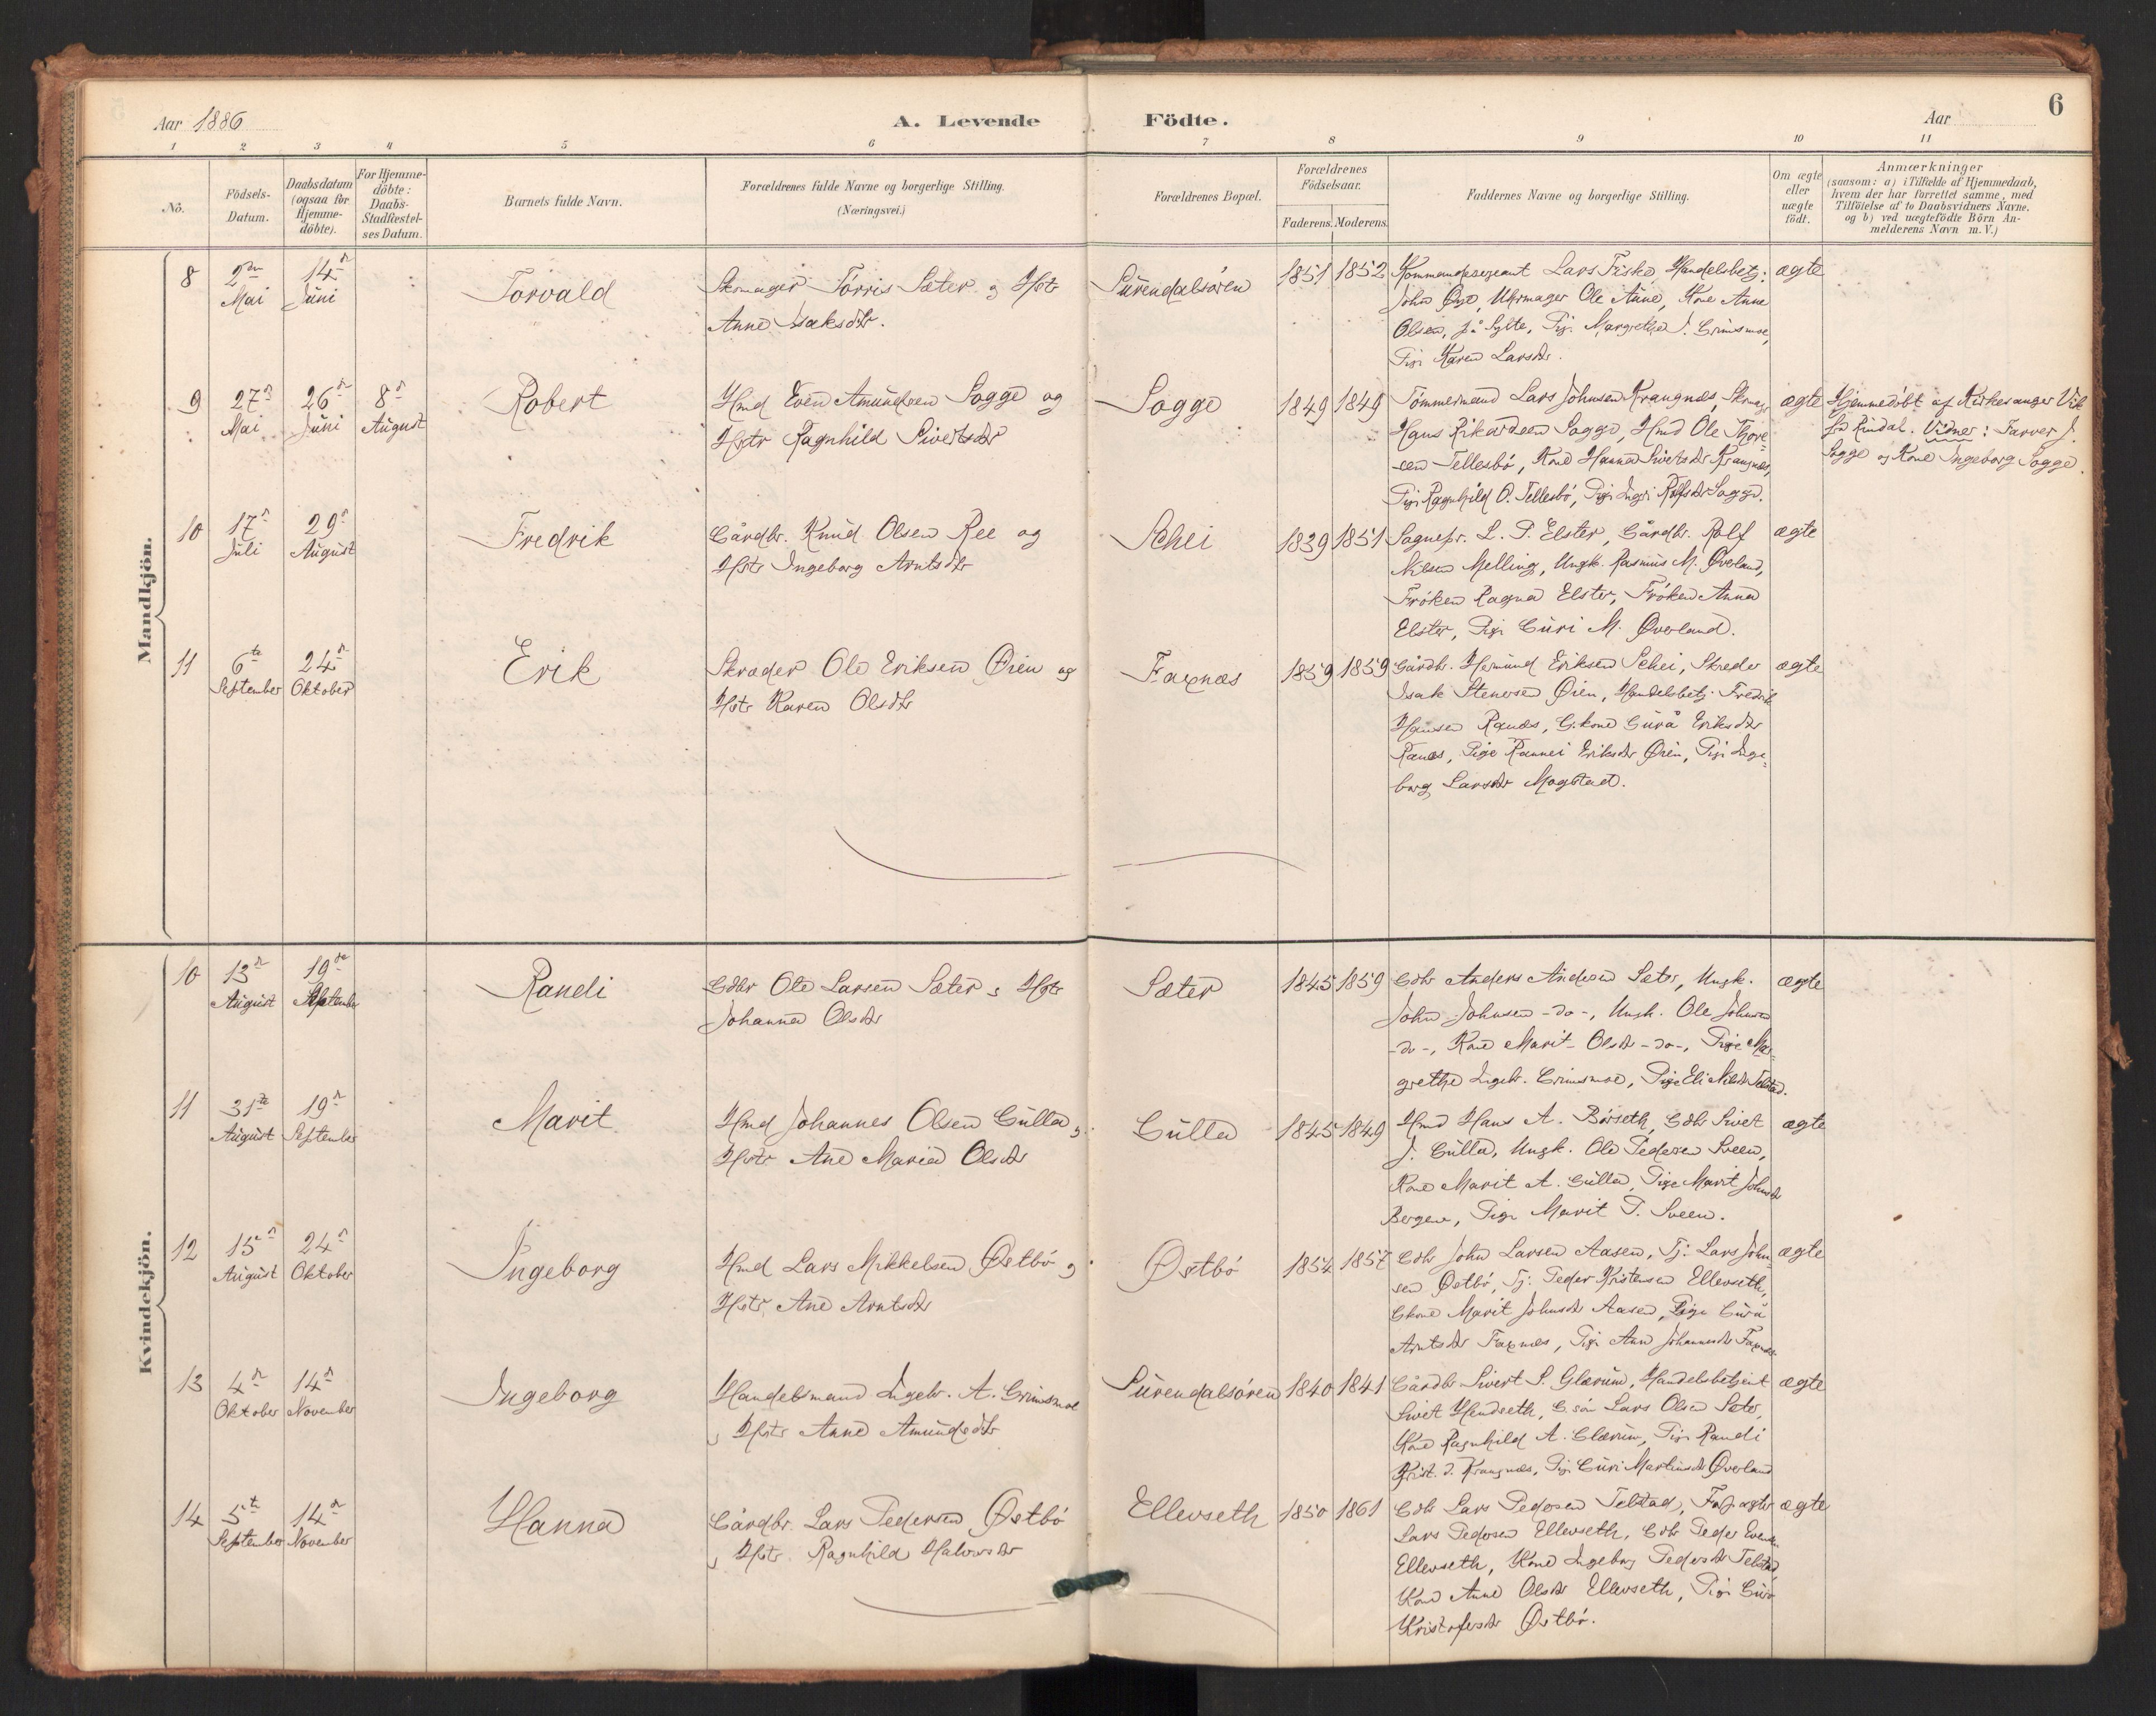 Aar 1886
A. Levende Födte.
Aar
6
1 2 3 4 5 6 7 8 9 10 11
Nö.
Födsels-Datum.
Daabsdatum (ogsaa for Hjemmedöbte).
For Hjemmedöbte: Daabs-Stadfæstelses Datum.
Barnets fulde Navn.
Forældrenes fulde Navne og borgerlige Stilling. (Næringsvei.)
Forældrenes Bopæl.
Forældrenes Födselsaar.
Faderens. Moderens.
Faddernes Navne og borgerlige Stilling.
Om ægte eller uægte födt.
Anmærkninger
(saasom: a) i Tilfælde af Hjemmedaab,
hvem der har forrettet samme, med
Tilföielse af to Daabsvidners Navne.
og b) ved uægtefödte Börn Anmelderens Navn m.V.)
Mandkjön.
8 2den Mai 14de Juni Torvald
Skomager Torris Sæter og Hstr
Anne Isaksdtr.
Surendalsören 1851 1852
Kommandersergeant Lars Fiske, Handelsbetj:
John Öye, Uhrmager Ole Aune, Kone Anne
Olsen, på Sylte, Pige Margrethe I. Grimsmoe,
Pige Karen Larsdtr.
ægte
9 27de Mai 26de Juni 8de August Robert
Hmd Even Amundsen Sogge og
Hstr Ragnhild Sivertsdtr
Sogge 1849 1849
Tömmermand Lars Johnsen Krangnæs, Skomag.
Hans Rikardsen Sogge, Hmd Ole Thore-
sen Tellesbö, Kone Hanna Sivertsdtr Krangnæs,
Pige Ragnhild O. Tellesbö, Pige Ingri Rolfsdtr Sogge.
ægte
Hjemmedöbt af Kirkesanger Vik
fra Rindal. Vidner: Farver J.
Sogge og Kone Ingeborg Sogge.
10 17de Juli 29de August Fredrik
Gårdbr. Knud Olsen Ree og
Hstr Ingeborg Arntsdtr
Schei 1839 1851
Sognepr. L. P. Elster, Gårdbr. Rolf
Nilsen Melling, Ungk. Rasmus M. Øverland,
Fröken Ragna Elster, Fröken Anna
Elster, Pige Guri M. Øverland.
ægte
11 6te September 24de Oktober Erik
Skræder Ole Eriksen Øien og
Hstr Karen Olsdtr
Faxnæs 1859 1859
Gårdbr. Hermund Eriksen Schei, Skreder
Isak Stenersen Øien, Handelsbetj. Fredrik
Hansen Ranæs, G.kone Gurå Eriksdtr
Ranæs, Pige Rannei Eriksdtr Øien, Pige Inge-
borg Larsdtr Mogstad.
ægte
Kvindekjön.
10 13de August 19de September Randi
Gdbr Ole Larsen Sæter og Hstr
Johanna Olsdtr
Sæter 1845 1859
Gdbr Anders Andersen Sæter, Ungk.
John Johnsen -do-, Ungk. Ole Johnsen
-do-, Kone Marit Olsdtr -do-, Pige Mar-
grethe Ingebr. Grimsmoe, Pige Eli Nilsdtr Telstad.
ægte
11 31te August 19de September Marit
Hmd Johannes Olsen Gulla og
Hstr Ane Maria Olsdtr
Gulla 1845 1849
Hmd Hans A. Börseth, Gdbr Sivert
J. Gulla, Ungk. Ole Pedersen Sveen,
Kone Marit A. Gulla, Pige Marit Johnsdtr
Bergene, Pige Marit P. Sveen.
ægte
12 15de August 24de Oktober Ingeborg
Hmd Lars Mikkelsen Østbö og
Hstr Ane Arntsdtr
Østbö 1854 1857
Gdbr John Larsen Aasen, Tj: Lars John-
sen Østbö, Tj: Peder Kristensen Ellevseth,
Gkone Marit Johnsdtr Aasen, Pige Gurå
Arntsdtr Faxnæs, Pige Ane Johannesdtr Faxnæs
ægte
13 4de Oktober 14de November Ingeborg
Handelsmand Ingebr. A. Grimsmoe
og Hstr Anne Amundsdtr
Surendalsören 1840 1841
Gårdbr Sivert S. Glærum, Handelsbetjent
Sivert Hendseth, G.sön Lars Olsen Sæter,
Kone Ragnhild A. Glærum, Pige Randi
Krist. d. Krangnæs, Pige Guri Martinsdtr Øverland
ægte
14 5te September 14de November Hanna
Gårdbr. Lars Pedersen Østbö
og Hstr. Ragnhild Halvorsdtr
Ellevseth 1850 1861
Gdbr Lars Pedersen Telstad,
Lars Pedersen Ellevseth, Gdbr Peder Evensen
Ellevseth, Kone Ingeborg Pedersdtr Telstad,
Kone Anne Olsdtr Ellevseth, Pige Guro
Kristofersdtr Østbö.
ægte